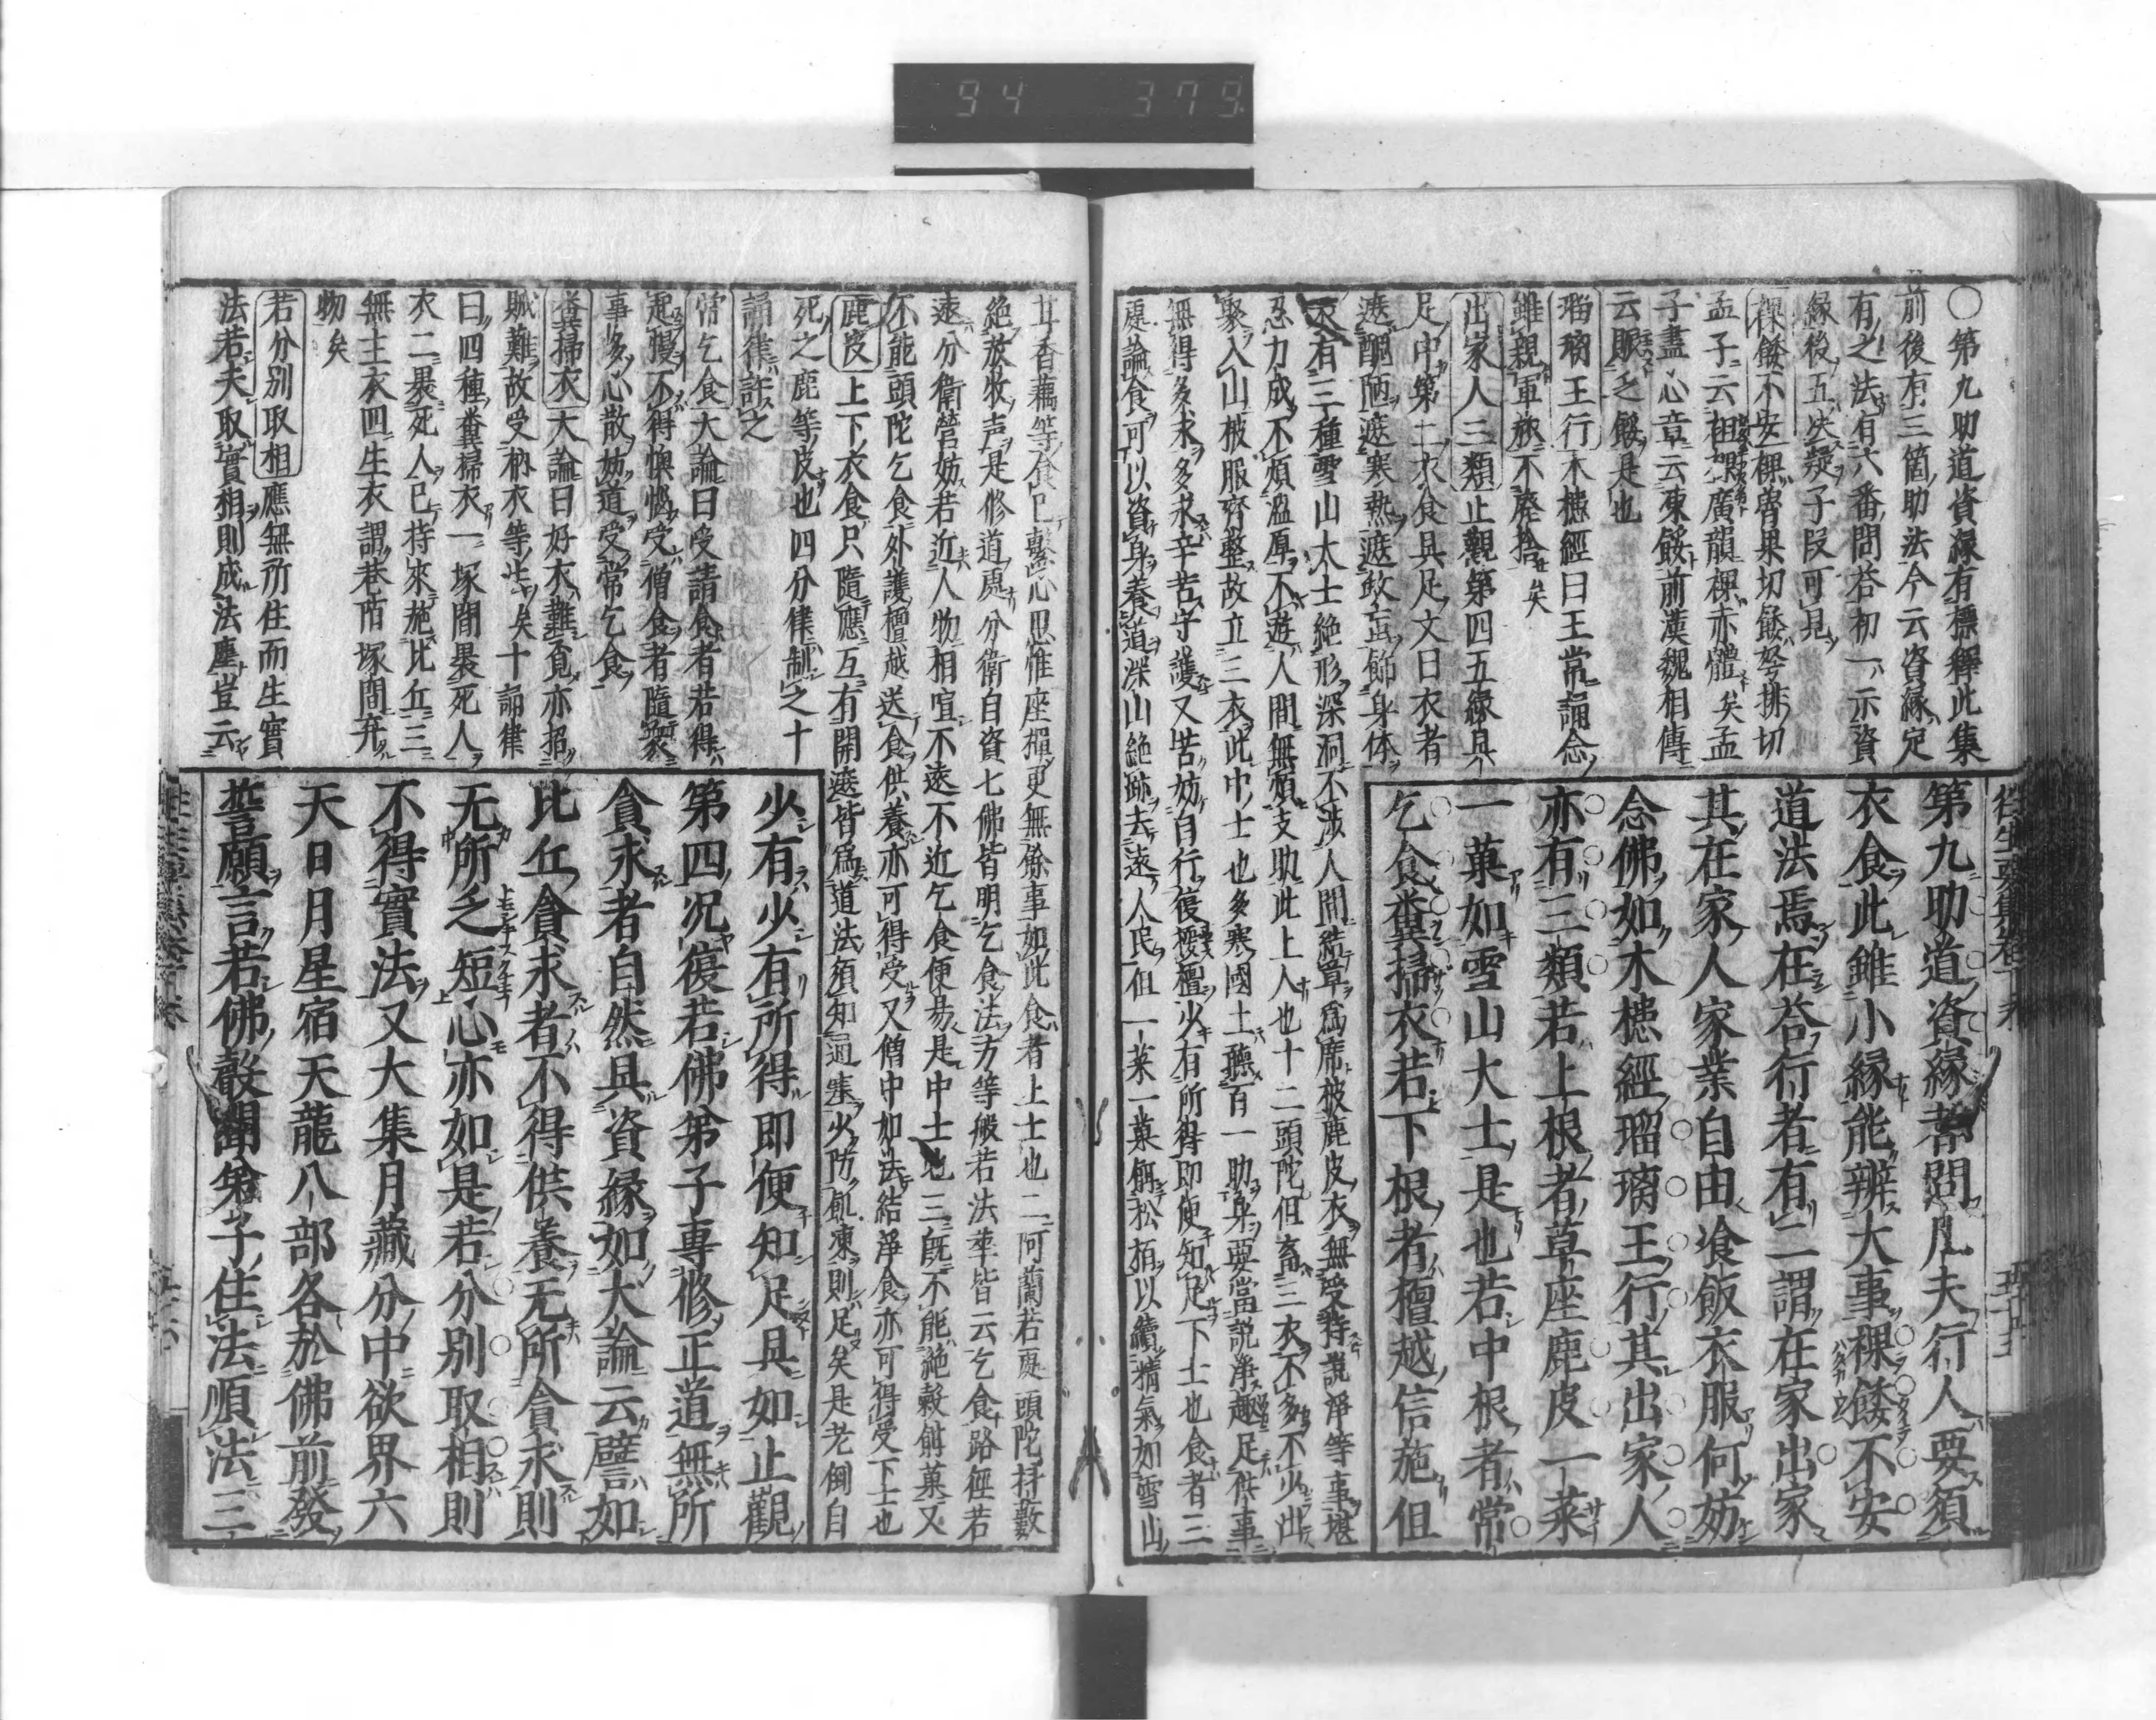 94 379
○第九助道資縁有標釋此集
前後有三箇助法今云資縁定
有之法有六番問荅初一示資
縁後五決疑子段可見
裸餧不安裸魯果切餧弩排切
孟子云袒裸廣韻裸赤體矣孟
子盡心章云凍餒前漢魏相傳
云賑乏餧是也
瑠璃王行木槵經曰王常誦念
雖親軍旅不廢捨矣
出家人三類止觀第四五縁具
足中第二衣食具足文曰衣者
遮醜陋遮寒熱遮蚊虻飾身体
衣有三種雪山大士絶形深洞不涉人間結草為席被鹿皮衣無受持說淨等事堪
忍力成不須溫厚不遊人間無煩支助此上人也十二頭陀但畜三衣不多不少出
聚入山被服齊整故立三衣此中士也多寒國土聽百一助身要當說淨趣足供事
無得多求多求辛苦守護又苦妨自行復擾檀少有所得即便知足下士也食者三
處論食可以資身養道深山絶跡去遠人民但一菜一菓餅松栢以續精氣如雪山
第九助道資縁者問凡夫行人要須
衣食此雖小縁能辨大事裸餧不安
道法焉在荅行者有二謂在家出家
其在家人家業自由飡飯衣服何妨
念佛如木槵經瑠璃王行其出家人
亦有三類若上根者草座鹿皮一菜
一菓如雪山大士是也若中根者常
乞食糞掃衣若下根者檀越信施但
甘香藕等食已繫心思惟座禪更無餘事如此食者上士也二阿蘭若處頭陀抖擻
絶放牧声是修道處分衛自資七佛皆明乞食法方等般若法華皆云乞食路徑若
遠分衛營妨若近人物相喧不遠不近乞食便易是中士也三既不能絶穀餌菓又
不能頭陀乞食外護檀越送食供養亦可得受又僧中如法結淨食亦可得受下士也
鹿皮上下衣食只隨應互有開遮皆爲道法須知通塞火防飢凍則足矣是老倒自
死之鹿等皮也四分律制之十
誦律許之
常乞食大論曰受請食者若得
起慢不得懊惱受僧食者隨衆
事多心散妨道受常乞食
糞掃衣大論曰好衣難覓亦招
賊難故受衲衣等法矣十誦律
曰四種糞掃衣一塚間褁死人
衣二褁死人已持來施比丘三
無主衣四生衣謂巷陌塚間弃
物矣
若分別取相應無所住而生實
法若夫取實相則成法塵豈云
少有少有所得即便知足具如止觀
第四況復若佛弟子專修正道無所
貪求者自然具資縁如大論云譬如
比丘貪求者不得供養无所貪求則
无所乏短心亦如是若分別取相則
不得實法又大集月藏分中欲界六
天日月星宿天龍八部各於佛前發
誓願言若佛聲聞弟子住法順法三